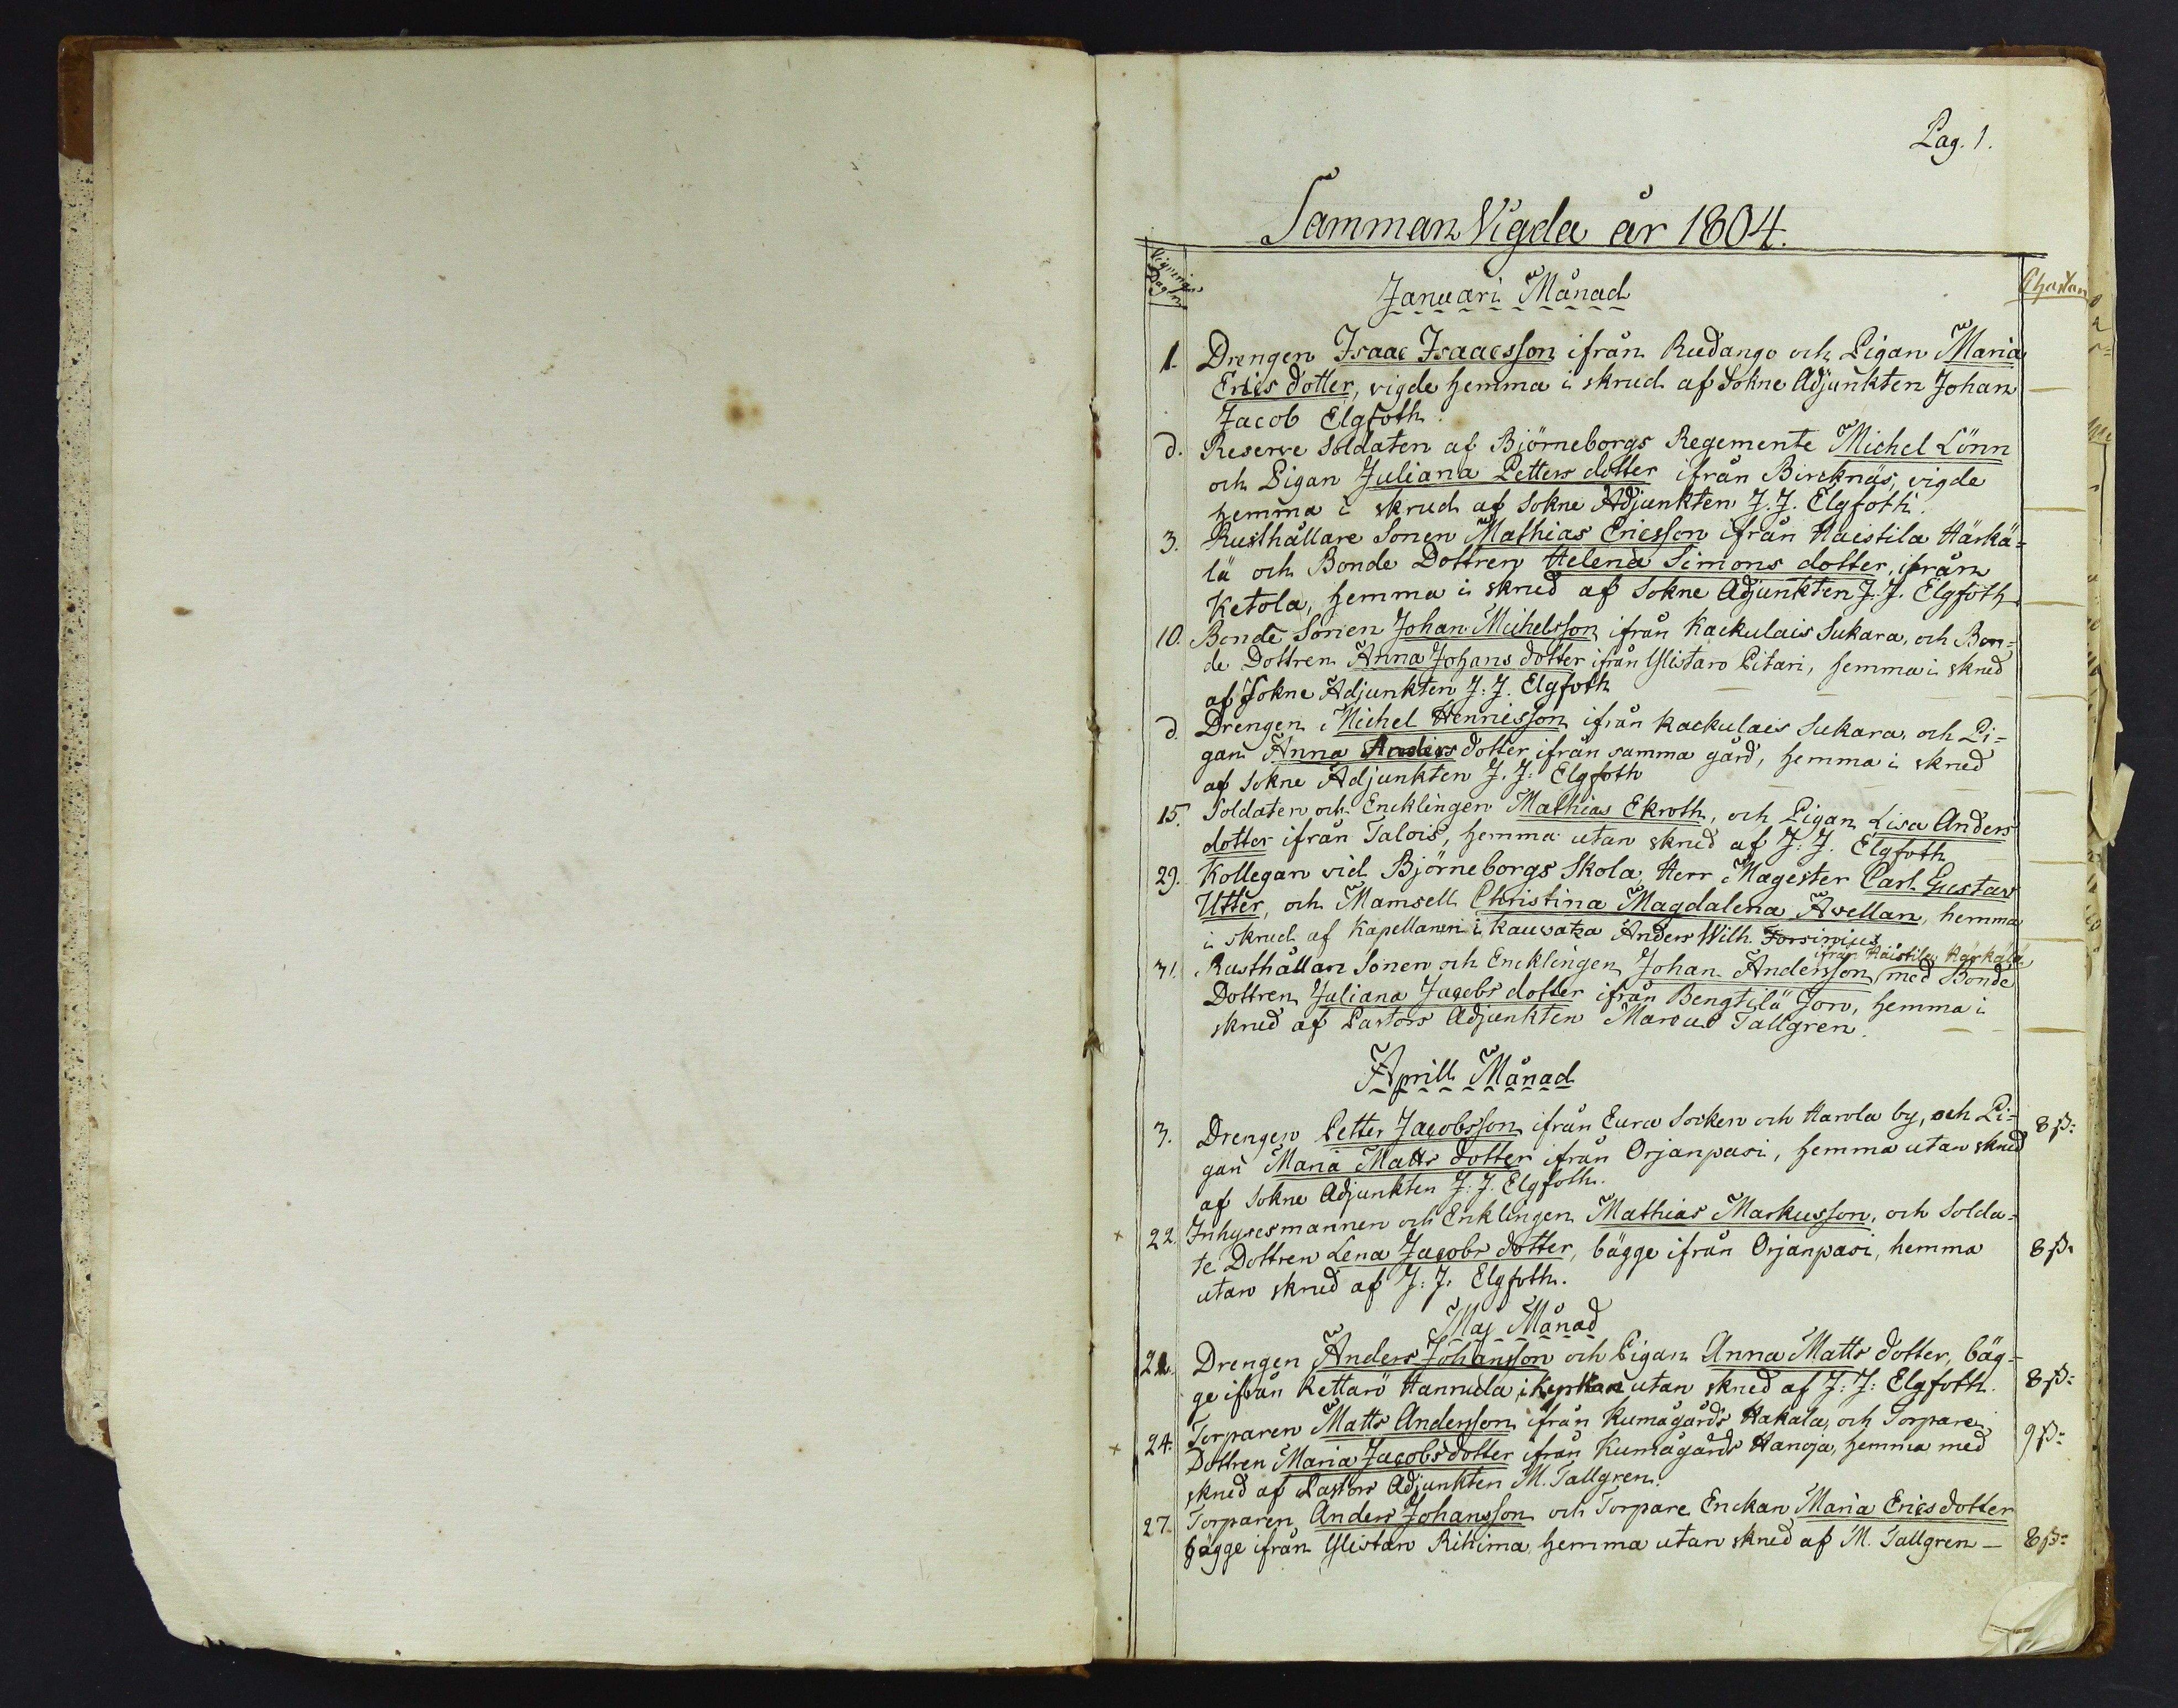 Pag. 1.
Samman Vigda år 1804.
Vignings Dagen
Januari Månad
1. Drengen Isaac Isaacsson ifrån Rudango och Pigan Maria
Erics dotter, vigde hemma i skrud af Sokne Adjunkten Johan
Jacob Elgfoth.
d. Reserve Soldaten af Björneborgs Regemente Michel Lönn
och Pigan Juliana Petters dotter ifrån Bircknäs, vigde
hemma i skrud af Sokne Adjunkten J. J. Elgfoth.
3. Rusthållare Sonen Mathias Ericsson ifrån Haistila Härkä-
lä och Bonde Dottren Helena Simons dotter, ifrån
Ketola, hemma i skrud af Sokne Adjunkten J. J. Elgfoth
10. Bonde Sonen Johan Michelsson ifrån Kackulais Sukara, och Bon-
de Dottren Anna Johans dotter ifrån Ylistaro Pitari, hemma i skrud
af Sokne Adjunkten J. J. Elgfoth
d. Drengen Michel Henricsson ifrån Kackulais Sukara, och Pi-
gan Anna Anders dotter ifrån samma gård, hemma i skrud
af Sokne Adjunkten J. J. Elgfoth
15. Soldaten och Encklingen Mathias Ekroth, och Pigan Lisa Anders
dotter ifrån Talois, hemma utan skrud af J. J. Elgfoth
29. Kollegan vid Björneborgs Skola, Herr Magester Carl Gustav
Utter, och Mamsell Christina Magdalena Avellan, hemma
i skrud af Kapellanen i Kauvatsa Anders Wilh. Forsinius
ifrån Haistila Härkälä
31. Rusthållare Sonen och Encklingen Johan Andersson med Bonde
Dottren Juliana Jacobs dotter ifrån Bengtilä Jov, hemma i
skrud af Pastors Adjunkten Marcus Tallgren.
Aprill Månad
3. Drengen Petter Jacobsson ifrån Eura Socken och Harola by, och Pi- 8 ß:
gan Maria Matts dotter ifrån Orjanpasi, hemma utan skrud
af Sokne Adjunkten J. J. Elgfoth.
+ 22. Inhysesmannen och Enklingen Mathias Markusson, och Solda-
te Dottren Lena Jacobs dotter, bägge ifrån Orjanpasi, hemma 8 ß:
utan skrud af J. J. Elgfoth.
Maj Månad
21. Drengen Anders Johansson och Pigan Anna Matts dotter, bäg-
ge ifrån Kettarö Hannula, i Kyrkan utan skrud af J: J: Elgfoth. 8 ß:
+ 24. Torparen Matts Andersson ifrån Kumågårds Hakala, och Torpare 9 ß:
Dottren Maria Jacobsdotter ifrån Kumågårds Hanoja, hemma med
skrud af Pastors Adjunkten M. Tallgren.
27. Torparen Anders Johansson och Torpare Enckan Maria Ericsdotter
bägge ifrån Ylistaro Riihima, hemma utan skrud af M. Tallgren — 8 ß: